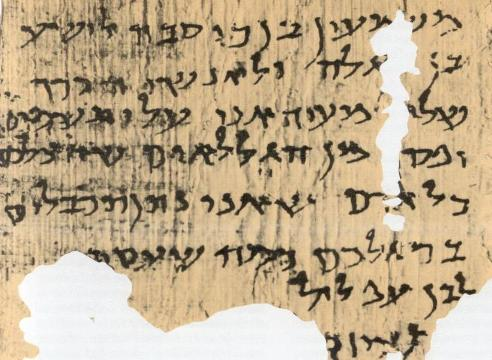 משמעון בן כוסבה לישע
בן גלגלה ולאנשי הכרך
שלום מעיד אני עלי תשמים
יפסד מן הגללאים שהצלכם
כל אדם שאני נותן תכבלים
ברגלכם כמה שעסתי
לבן עפלול